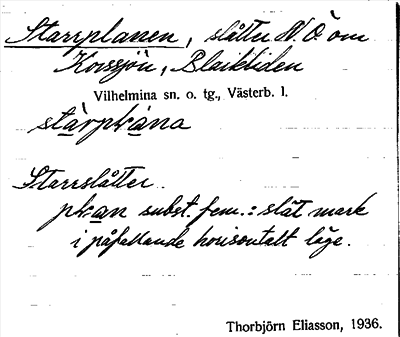 Starrplanen, slåtter N.Ö. om
Korssjön, Blaikliden
Vilhelmina sn. o. tg., Västerb. l.
stàrpḷána
Starrslåtter.
subst. fem.: slät mark
i påfallande horisontalt läge.
Thorbjörn Eliasson, 1936.